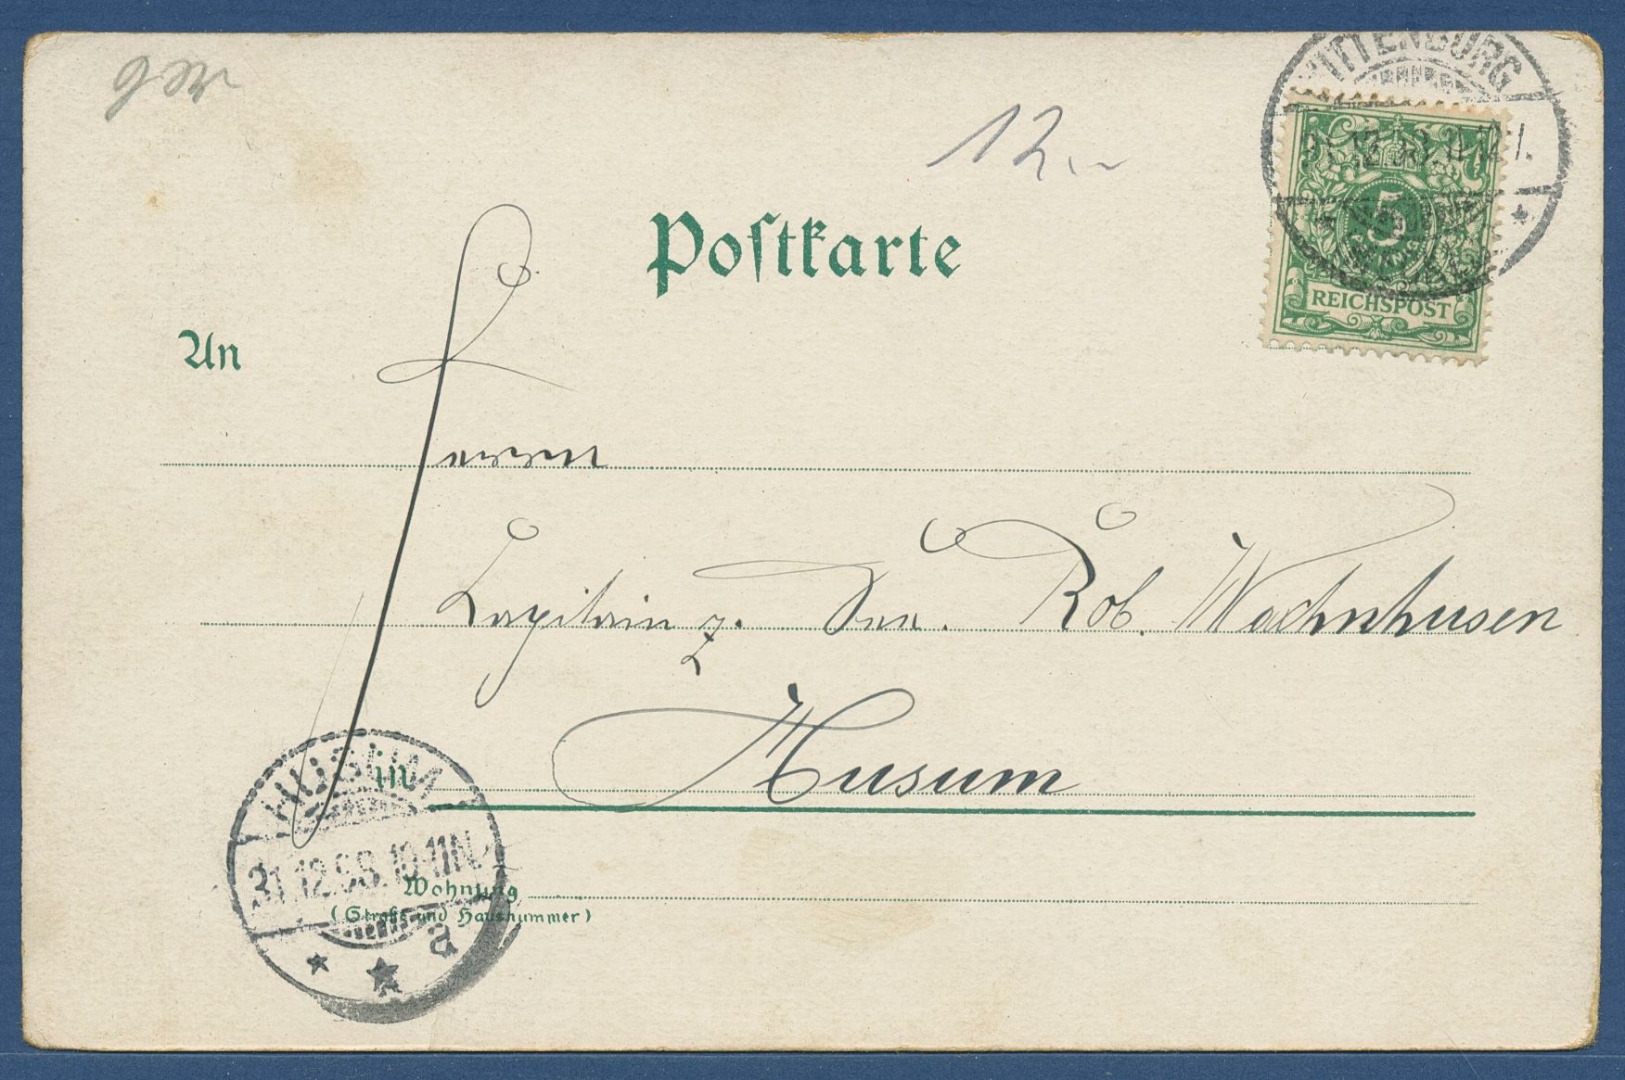 12.-
WITTENBURG
5
REICHSPOST
Postkarte
An
Herrn
Capitain z. See. Rob. Wachnhusen
in Husum
HUSUM
31.12.98.10-11N.
a
Wohnung
(Straße und Hausnummer)